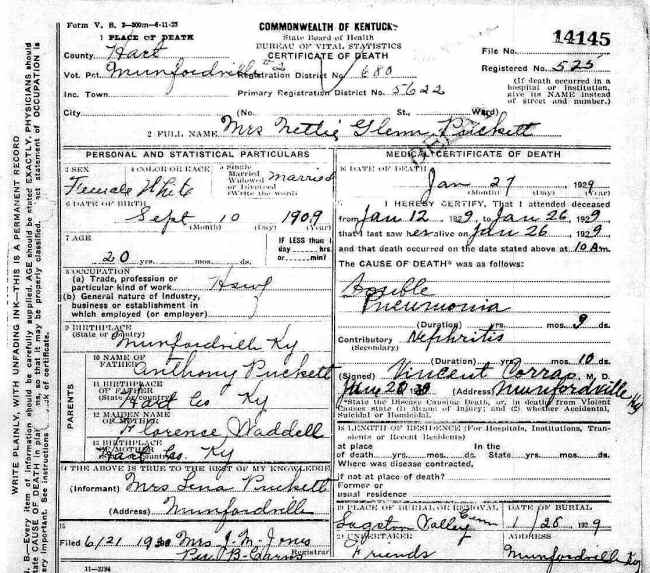 Form V. S. 2-300m-6-11-25
1 PLACE OF DEATH
COMMONWEALTH OF KENTUCKY
State Board of Health
BUREAU OF VITAL STATISTICS
CERTIFICATE OF DEATH
14145
File No.
County Hart
Vot. Pct. Munfordville #2 Registration District No. 680
Registered No. 525
Inc. Town Primary Registration District No. 5622
(If death occurred in a hospital or institution, give its NAME instead of street and number.)
City (No. St., Ward)
2 FULL NAME Mrs Nettie Glenn Puckett
PERSONAL AND STATISTICAL PARTICULARS
3 SEX Female
4 COLOR OR RACE White
5 Single Married Widowed or Divorced (Write the word) Married
6 DATE OF BIRTH
Sept 10 1909
(Month) (Day) (Year)
7 AGE
20 yrs. mos. ds.
IF LESS than 1 day hrs. or min?
8 OCCUPATION
(a) Trade, profession or particular kind of work
(b) General nature of industry, business or establishment in which employed (or employer)
9 BIRTHPLACE
(State or County) Munfordville Ky
PARENTS
10 NAME OF FATHER Anthony Puckett
11 BIRTHPLACE OF FATHER
(State or Country) Hart Co Ky
12 MAIDEN NAME OF MOTHER Florence Waddell
13 BIRTHPLACE OF MOTHER
Hart Co. Ky
14 THE ABOVE IS TRUE TO THE BEST OF MY KNOWLEDGE
(Informant) Mrs Lena Puckett
(Address) Munfordville
15
Filed 6/21 1930 Mrs J. M. Jones
Registrar
11-3184
MEDICAL CERTIFICATE OF DEATH
16 DATE OF DEATH
Jan 27 1929
(Month) (Day) (Year)
I HEREBY CERTIFY, That I attended deceased
from Jan 12 1929, to Jan 26 1929
that I last saw her alive on Jan 26, 1929
and that death occurred on the date stated above at 10 Am
The CAUSE OF DEATH* was as follows:
Pneumonia
(Duration) yrs. mos. 9 ds.
Contributory Nephritis
(Secondary)
(Duration) yrs. mos. 10 ds.
(Signed) Vincent Corrao, M. D.
(Address) Munfordville Ky
*State the Disease Causing Death, or, in deaths from Violent Causes state (1) Means of Injury; and (2) whether Accidental, Suicidal or Homicidal.
18 LENGTH OF RESIDENCE (For Hospitals, Institutions, Transients or Recent Residents)
at place of death yrs. mos. ds. In the State yrs. mos. ds.
Where was disease contracted,
if not at place of death?
Former or usual residence
19 PLACE OF BURIAL OR REMOVAL DATE OF BURIAL
Valley Cem 1/28 1929
UNDERTAKER ADDRESS
Friends Munfordville Ky